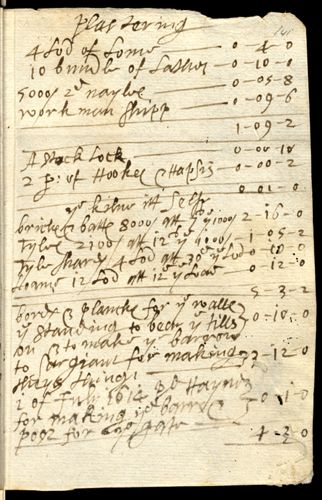 plastering
4 lod of Lome 0-4-0
10 bundle of Lathes 0-10-0
5000 2d nayles 0-05-8
work man shipp 0-09-6
1-09-2
A Stock Lock 0-00-10
2 p: of Hookes & Hapsis 0-00-2
0-01-0
ye kilne it self
bricks & batts 8000 att ye 1000 2-16-0
Tyles 2100 att 12s ye 1000 1-05-2
Tyle shards 4 lod att ye lod 0-10-0
Loame 12 lod att 12d ye Load 0-12-0
5-3-2
bords & plancks for ye walls
ye standing to beat ye tills 0-10-0
on & to make ye barrow
to Sargiant for making -12-0
things
1 of July 1614 pd Haynes
for making ye barrow 0-1-0
post for gate
4-2-0